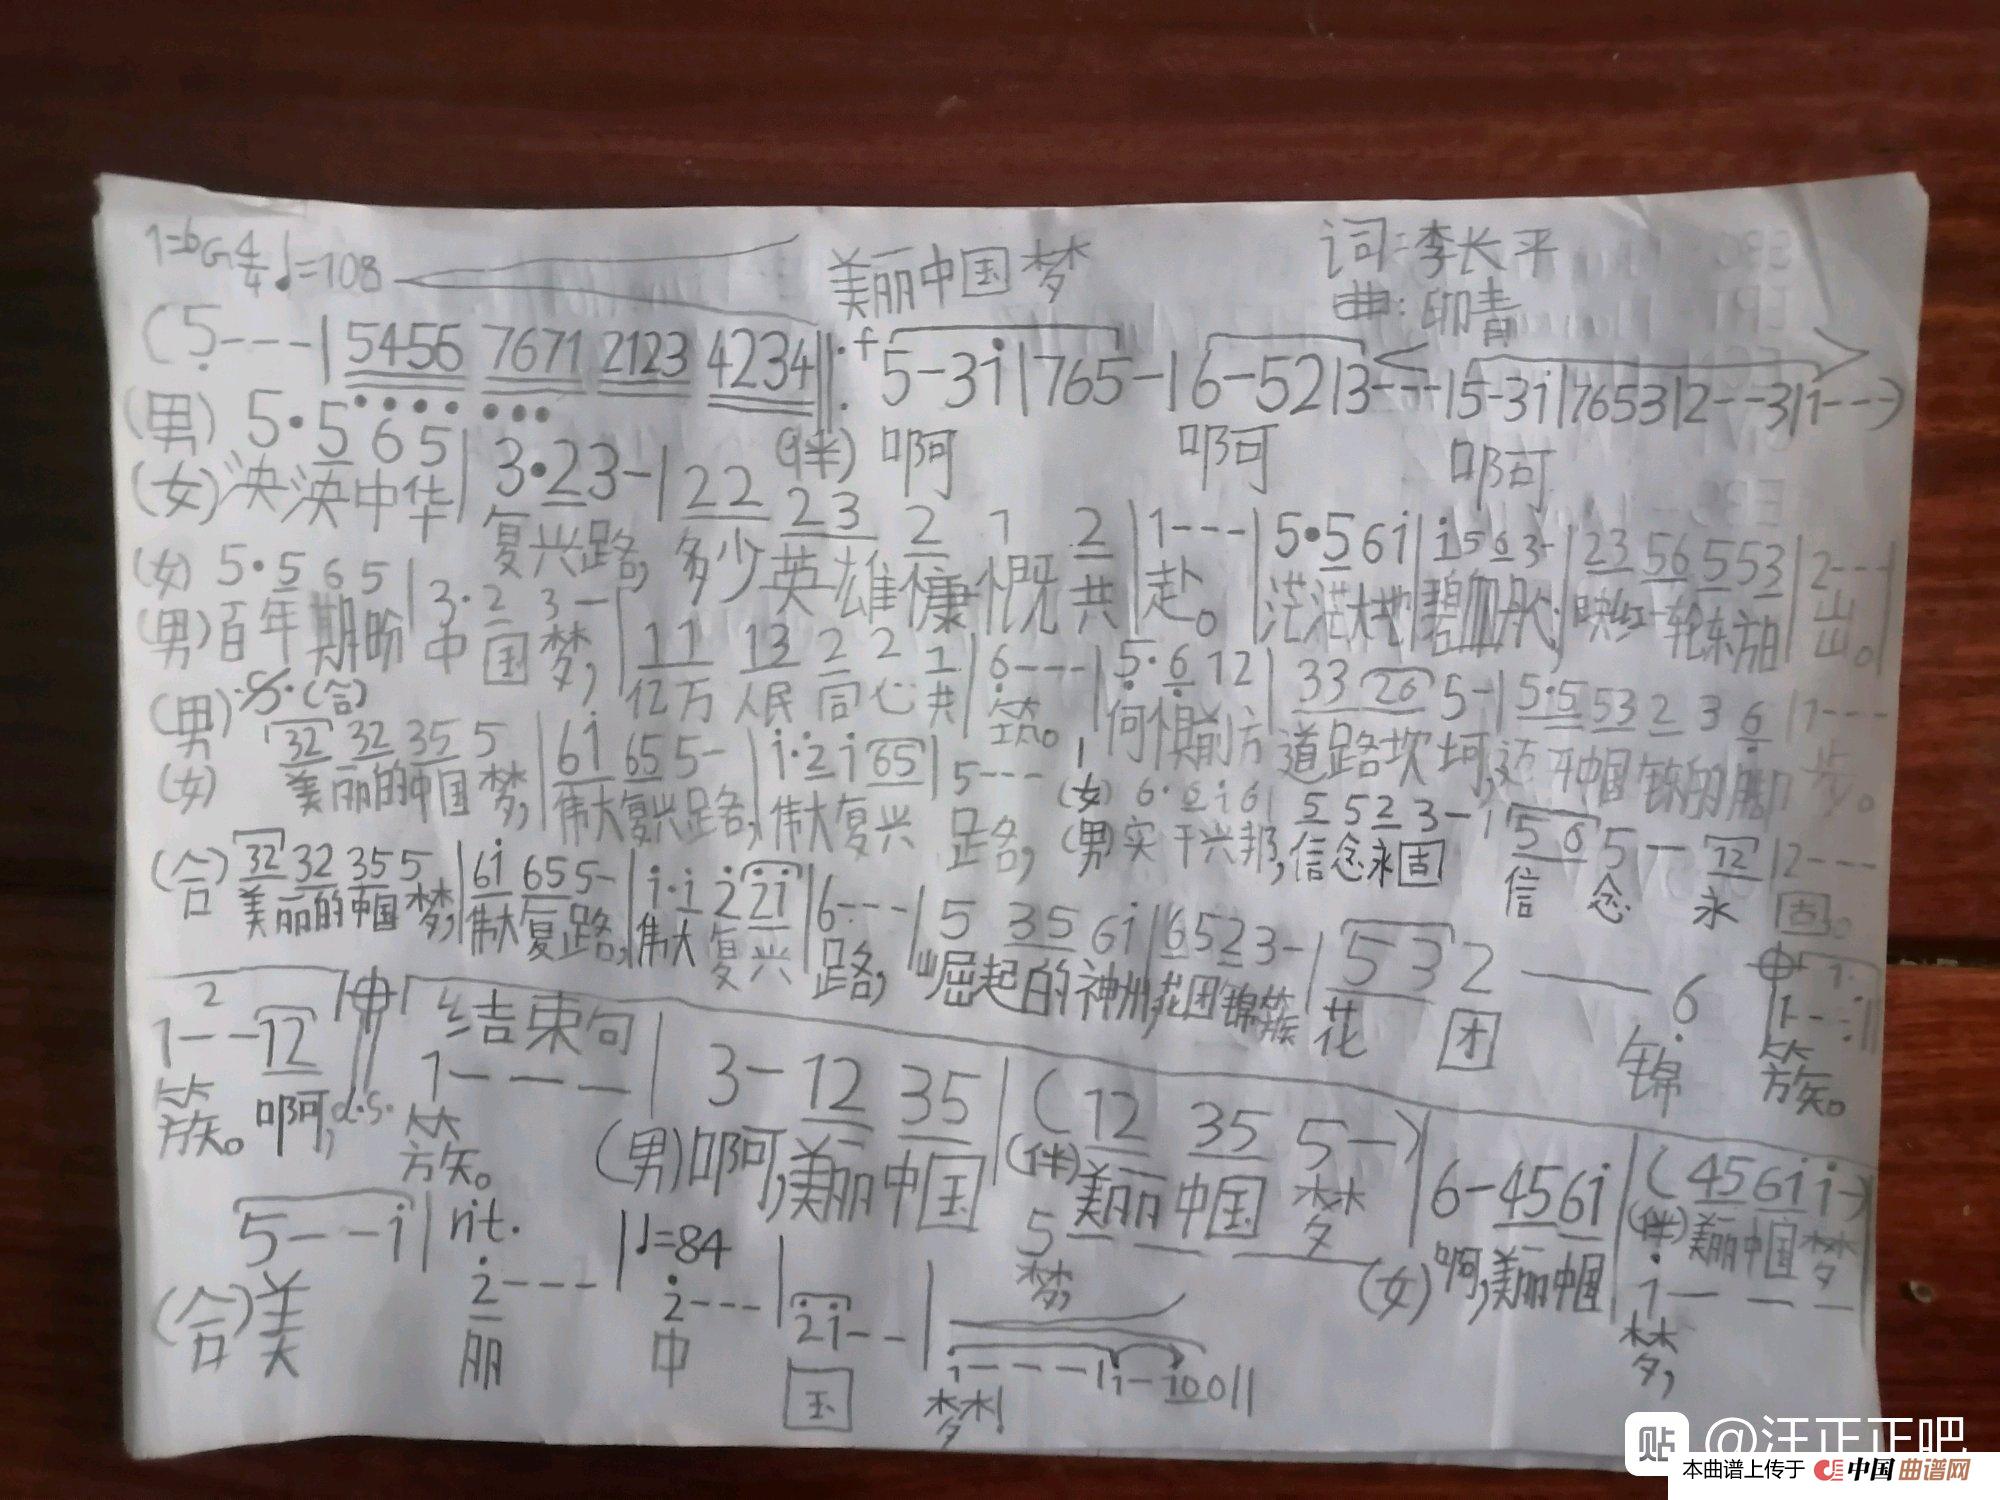 1=bG 4/4 ♩=108
美丽中国梦
词:李长平
曲:印青
(5---|5456 7671 2123 4234‖: f 5-3i|765-|6-52|3---|5-3i|7653|2--3|1---)
(伴) 啊 啊 啊
(男) 5·5 6 5|3·2 3-|22 23 2 1 2|1---|5·5 6 i|i 5 6 3-|23 56 5 5 3|2---
(女) 泱泱中华 复兴路,多少英雄慷慨共赴。茫茫大地碧血丹心,映红一轮东方日出。
(女) 5·5 6 5|3·2 3-|11 13 2 2 1|6---|5·6 1 2|33 26 5-|5·5 53 2 3 6|1---
(男) 百年期盼中国梦,亿万人民同心共筑。何惧前方道路坎坷,迈开中国 的脚步。
(男) (合) 32 32 35 5|6i 65 5-|i·2 i 65|5---|(女) 6·6 i 6|5 5 2 3-|5 6 5-12|2---
(女) 美丽的中国梦,伟大复兴路,伟大复兴路,(男)实干兴邦,信念永固 信念永固。
(合) 32 32 35 5|6i 65 5-|i·i 2 2i|6---|5 35 6i|6 5 2 3-|5 3 2 — 6|1---:‖
美丽的中国梦,伟大复兴路,伟大复兴路,崛起的神州,花团锦簇 花团锦簇。
2 结束句
1--12‖ 1---|3-12 35|(12 35 5-)|6-45 6i|(45 6i i-)
簇。啊, d.s. 簇。(男)啊,美丽中国 (伴)美丽中国梦 (女)啊,美丽中国 (伴)美丽中国梦
5---
梦,
i---
梦,
5--i|rit. 2---|♩=84 2---|2i--|i----|i-i00‖
(合)美丽中国梦!
贴 @汪正正吧
本曲谱上传于 中国曲谱网